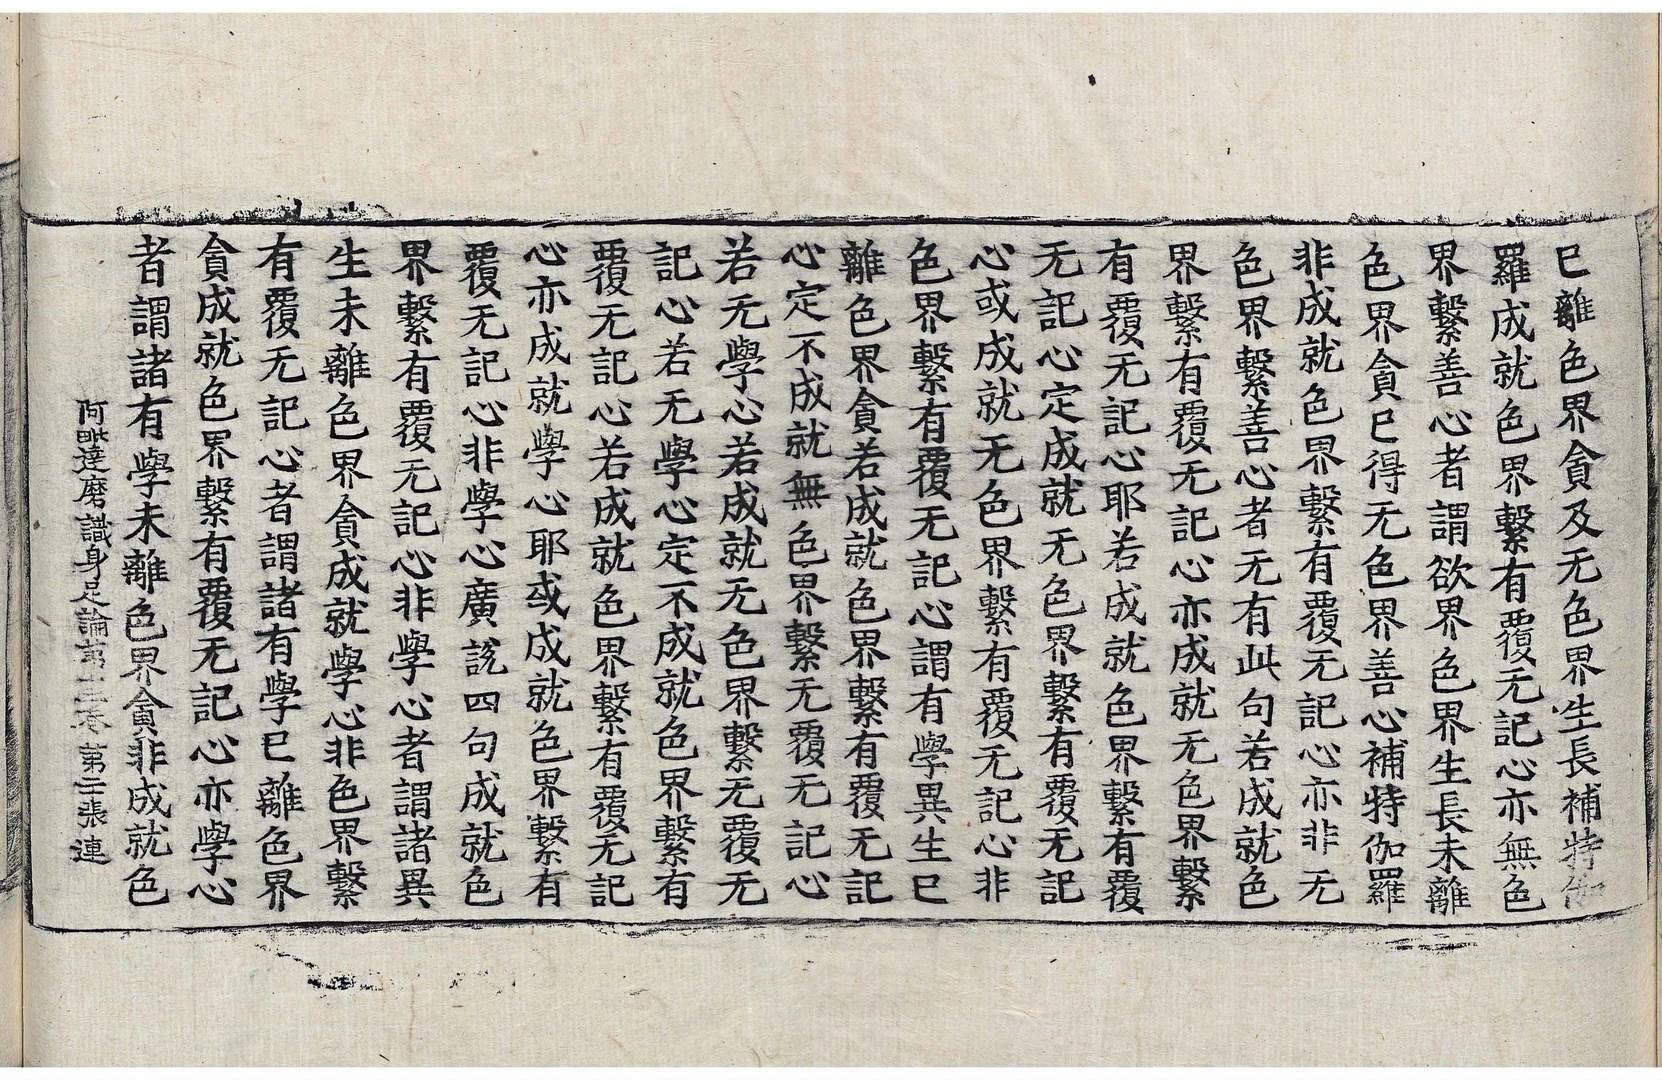 已離色界貪及无色界生長補特伽
羅成就色界繫有覆无記心亦無色
界繫善心者謂欲界色界生長未離
色界貪已得无色界善心補特伽羅
非成就色界繫有覆无記心亦非无
色界繫善心者无有此句若成就色
界繫有覆无記心亦成就无色界繫
有覆无記心耶若成就色界繫有覆
无記心定成就无色界繫有覆无記
心或成就无色界繫有覆无記心非
色界繫有覆无記心謂有學異生已
離色界貪若成就色界繫有覆无記
心定不成就無色界繫无覆无記心
若无學心若成就无色界繫无覆无
記心若无學心定不成就色界繫有
覆无記心若成就色界繫有覆无記
心亦成就學心耶或成就色界繫有
覆无記心非學心廣說四句成就色
界繫有覆无記心非學心者謂諸異
生未離色界貪成就學心非色界繫
有覆无記心者謂諸有學已離色界
貪成就色界繫有覆无記心亦學心
者謂諸有學未離色界貪非成就色
阿毗達磨識身足論第卷第三張連